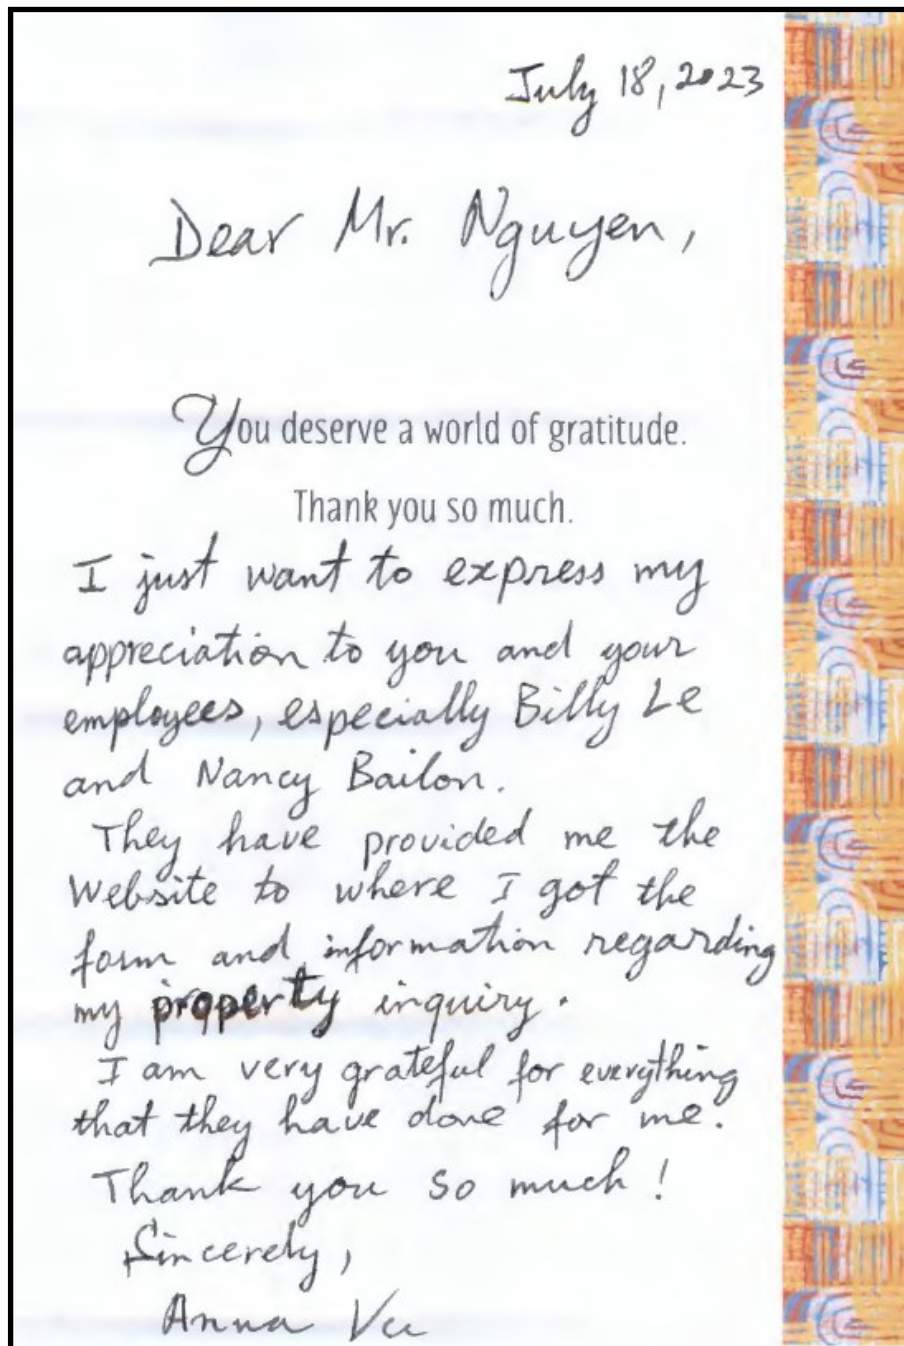 July 18, 2023
Dear Mr. Nguyen,
You deserve a world of gratitude.
Thank you so much.
I just want to express my
appreciation to you and your
employees, especially Billy Le
and Nancy Bailon.
They have provided me the
Website to where I got the
form and information regarding
my property inquiry.
I am very grateful for everything
that they have done for me.
Thank you so much!
Sincerely,
Anna Vu